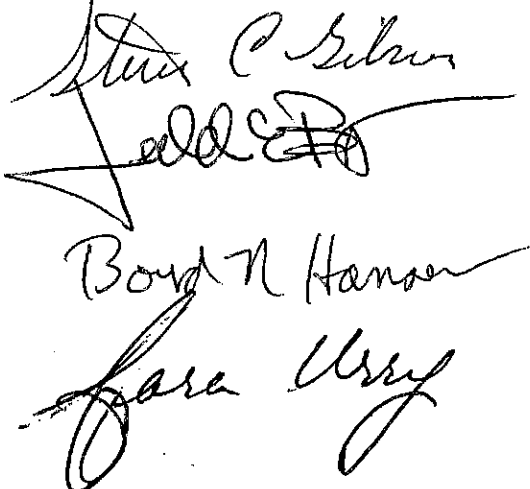 Steven C Gibson
Todd
Boyd N Hansen
Sara Urry